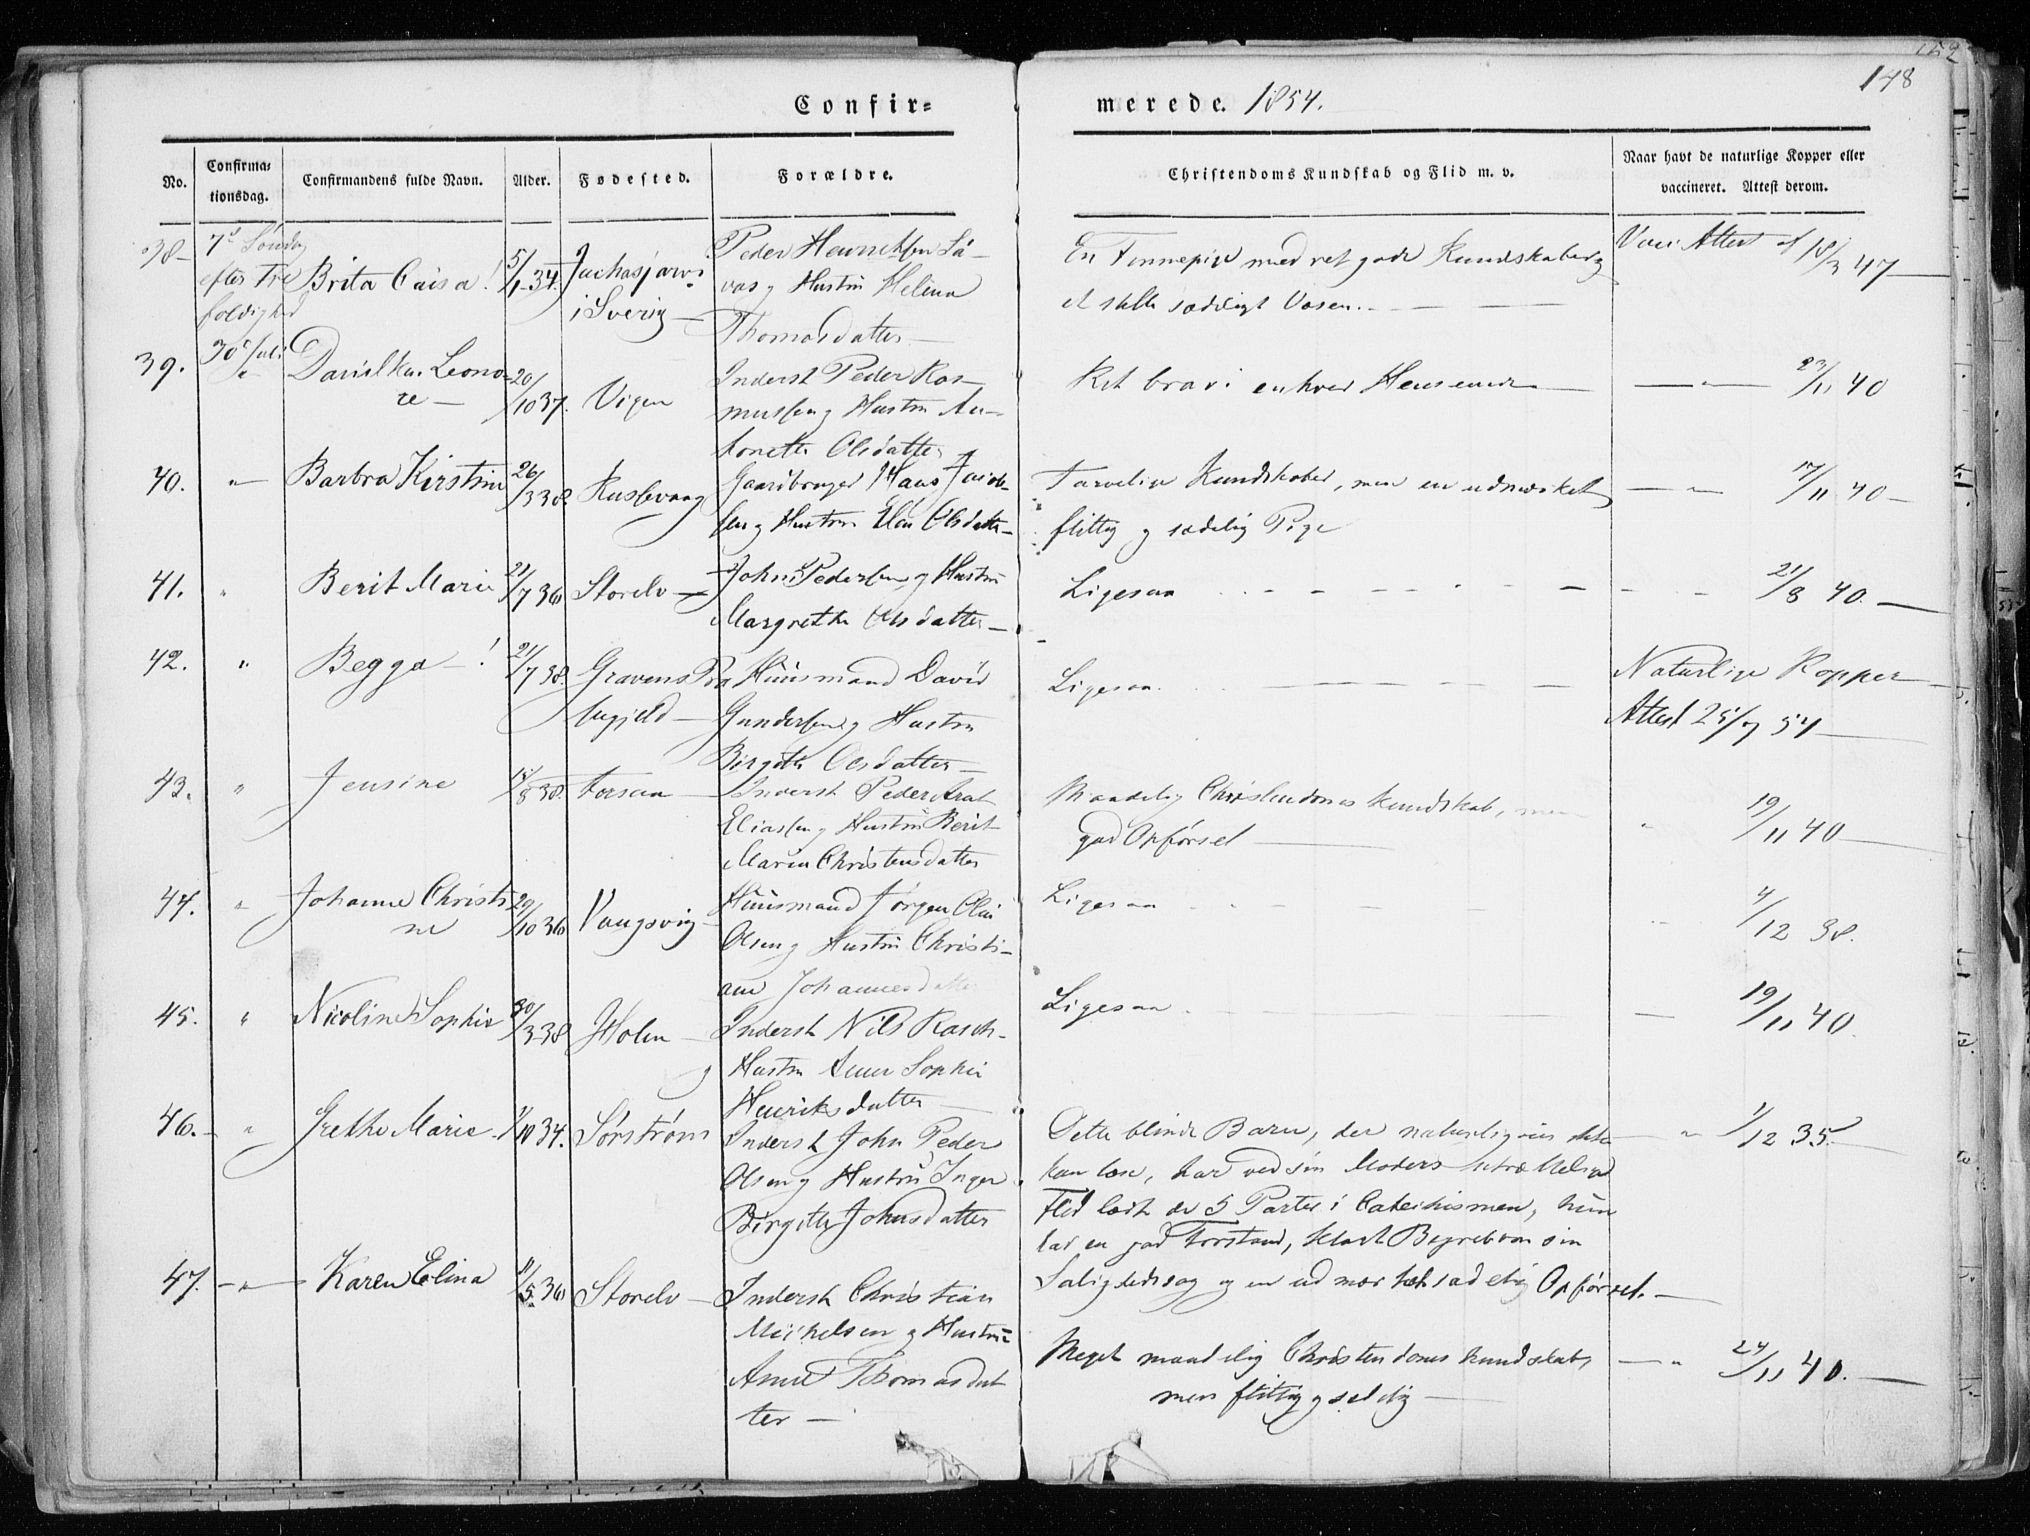 152
148
Confir=
merede. 1854.
No.
Confirma=
tionsdag.
Confirmandens fulde Navn.
Alder.
Fødested.
Forældre.
Christendoms Kundskab og Flid m. v.
Naar havt de naturlige Kopper eller
vaccineret. Attest derom.
38
7de Søndag
efter Tre
foldighed
30 Juli
Brita Caisa!
5/1 34.
Juckasjarvi
i Sverig
Peder Henriksen Sa-
vas og Hustru Helena
Thomasdatter
En Finnepige med ret gode Kundskaber og
et stille sædeligt Væsen.
Vacc Attest af 18/3 47
39.
"
Davikka Leono-
re
20/10 37.
Vigen
Inderst Peder Ras-
mussen og Hustru An-
tonette Olsdatter
Ret brav i enhver Henseende
" 23/11 40
40.
"
Barbra Kirstine
26/3 38.
Russevaag
Gaardbruger Hans Jacob-
sen og Hustru Elen Olsdatter
Tarvelige Kundskaber, men en udmærket
flittig og sædelig Pige
" 17/11 40
41.
"
Berit Marie
21/7 36
Storelv
John Pedersen og Hustru
Margrethe Olsdatter
Ligesaa
21/8 40.
42.
"
Begga !
21/7 38.
Gravens Præ
stegjeld
Huusmand David
Gundersen og Hustru
Birgitte Olsdatter
Ligesaa
Naturlige Kopper
Attest 25/7 54
43.
"
Jensine
15/8 38.
Forsaa
Inderst Peder Arnt
Eliassen og Hustru Berit
Maria Christensdatter
Maadelig Christendomskundskab, men
god Opførsel
" 19/11 40
44.
"
Johanne Christi
ne
29/10 36
Vangsvig
Huusmand Jørgen Olai
Olsen og Hustru Christi-
ane Johannesdatter
Ligesaa
4/12 38.
45.
"
Nicoline Sophie
30/3 38.
Holen
Inderst Nils Rasch
og
Hustru Anne Sophie
Henriksdatter
Ligesaa
19/11 40.
46.
"
Grethe Marie
1/10 34.
Sørstrøm
Inderst John Peder
Olsen og Hustru Inger
Birgitte Johnsdatter
Dette blinde Barn, der naturligviis ikke
kan læse, har ved sin Moders utrættelige
Flid lært de 5 Parter i Catechismen, hun
har en god Forstand, klart Begreb om sin
Salighedssag og en udmærket sædelig Opførsel.
" 1/12 35.
47.
"
Karen Elina
11/5 36
Storelv
Inderst Christian
Michelsen og Hustru
Anne Thomasdat
ter
Meget maadelig Christendomskundskab,
men flittig og sædelig
" 24/11 40.